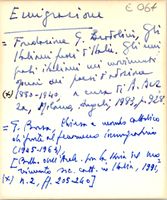 E 064
Emigrazione
= Fondazione G. Agnelli, Gli
italiani fuori d'Italia. Gli emi
grati italiani nei movimenti
operai dei paesi d'adozione
(x) 1880-1940, a cura di B. Bez
za, Milano, Angeli 1983, p. 928
= G. Rosoli, Chiesa e mondo cattolico
di fronte al fenomeno immigratorio
(1905-1963)
[Boll. dell'Arch. per la storia del mo
vimento soc. catt. in Italia, 1991,
(x) n. 2, p. 205-240]